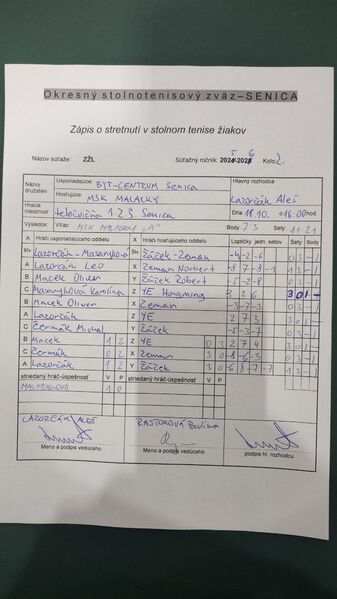 Okresný stolnotenisový zväz – SENICA
Zápis o stretnutí v stolnom tenise žiakov
Názov súťaže: ZŽL Súťažný ročník: Kolo: 2.
Názvy družstiev Usporiadajúce: BYT-CENTRUM Senica Hlavný rozhodca
Hosťujúce: MSK MALACKY Lazorčák Aleš
Hracia miestnosť: telocvičňa 1.Z.Š. Senica Dňa 18.10. o 16:00 hod.
Výsledok: Víťaz: MSK MALACKY "A" Body 7 3 Sety 11 21
Hráči usporiadajúceho oddielu X Hráči hosťujúceho oddielu Loptičky jedn. setov Sety Body
Štv Lazorčák - Masaryková Štv Žáček - Zeman -4 -2 -6 0 3 - 1
A Lazorčák Leo X Zeman Norbert 0 3 - 1
B Macek Oliver Y Žáček Róbert -5 -2 -8 0 3 - 1
C Masaryková Karolína Z YE Hongming 3 2 6 3 0 1 -
B Macek Oliver X Zeman
A Lazorčák Z YE 2 7 3
C Čermák Michal Y Žáček -5 -3 -7
B Macek 1 2 Z YE 0 3 2 7 4
C Čermák 0 2 X Zeman 3 0 -8 -6 -5
A Lazorčák 1 2 Y Žáček 3 0
striedaný hráč-úspešnosť V P striedaný hráč-úspešnosť V P
MASARYKOVÁ 1 0
LAZORČÁK ALEŠ RAJTOKOVÁ Pavlína
Meno a podpis vedúceho Meno a podpis vedúceho podpis hl. rozhodcu